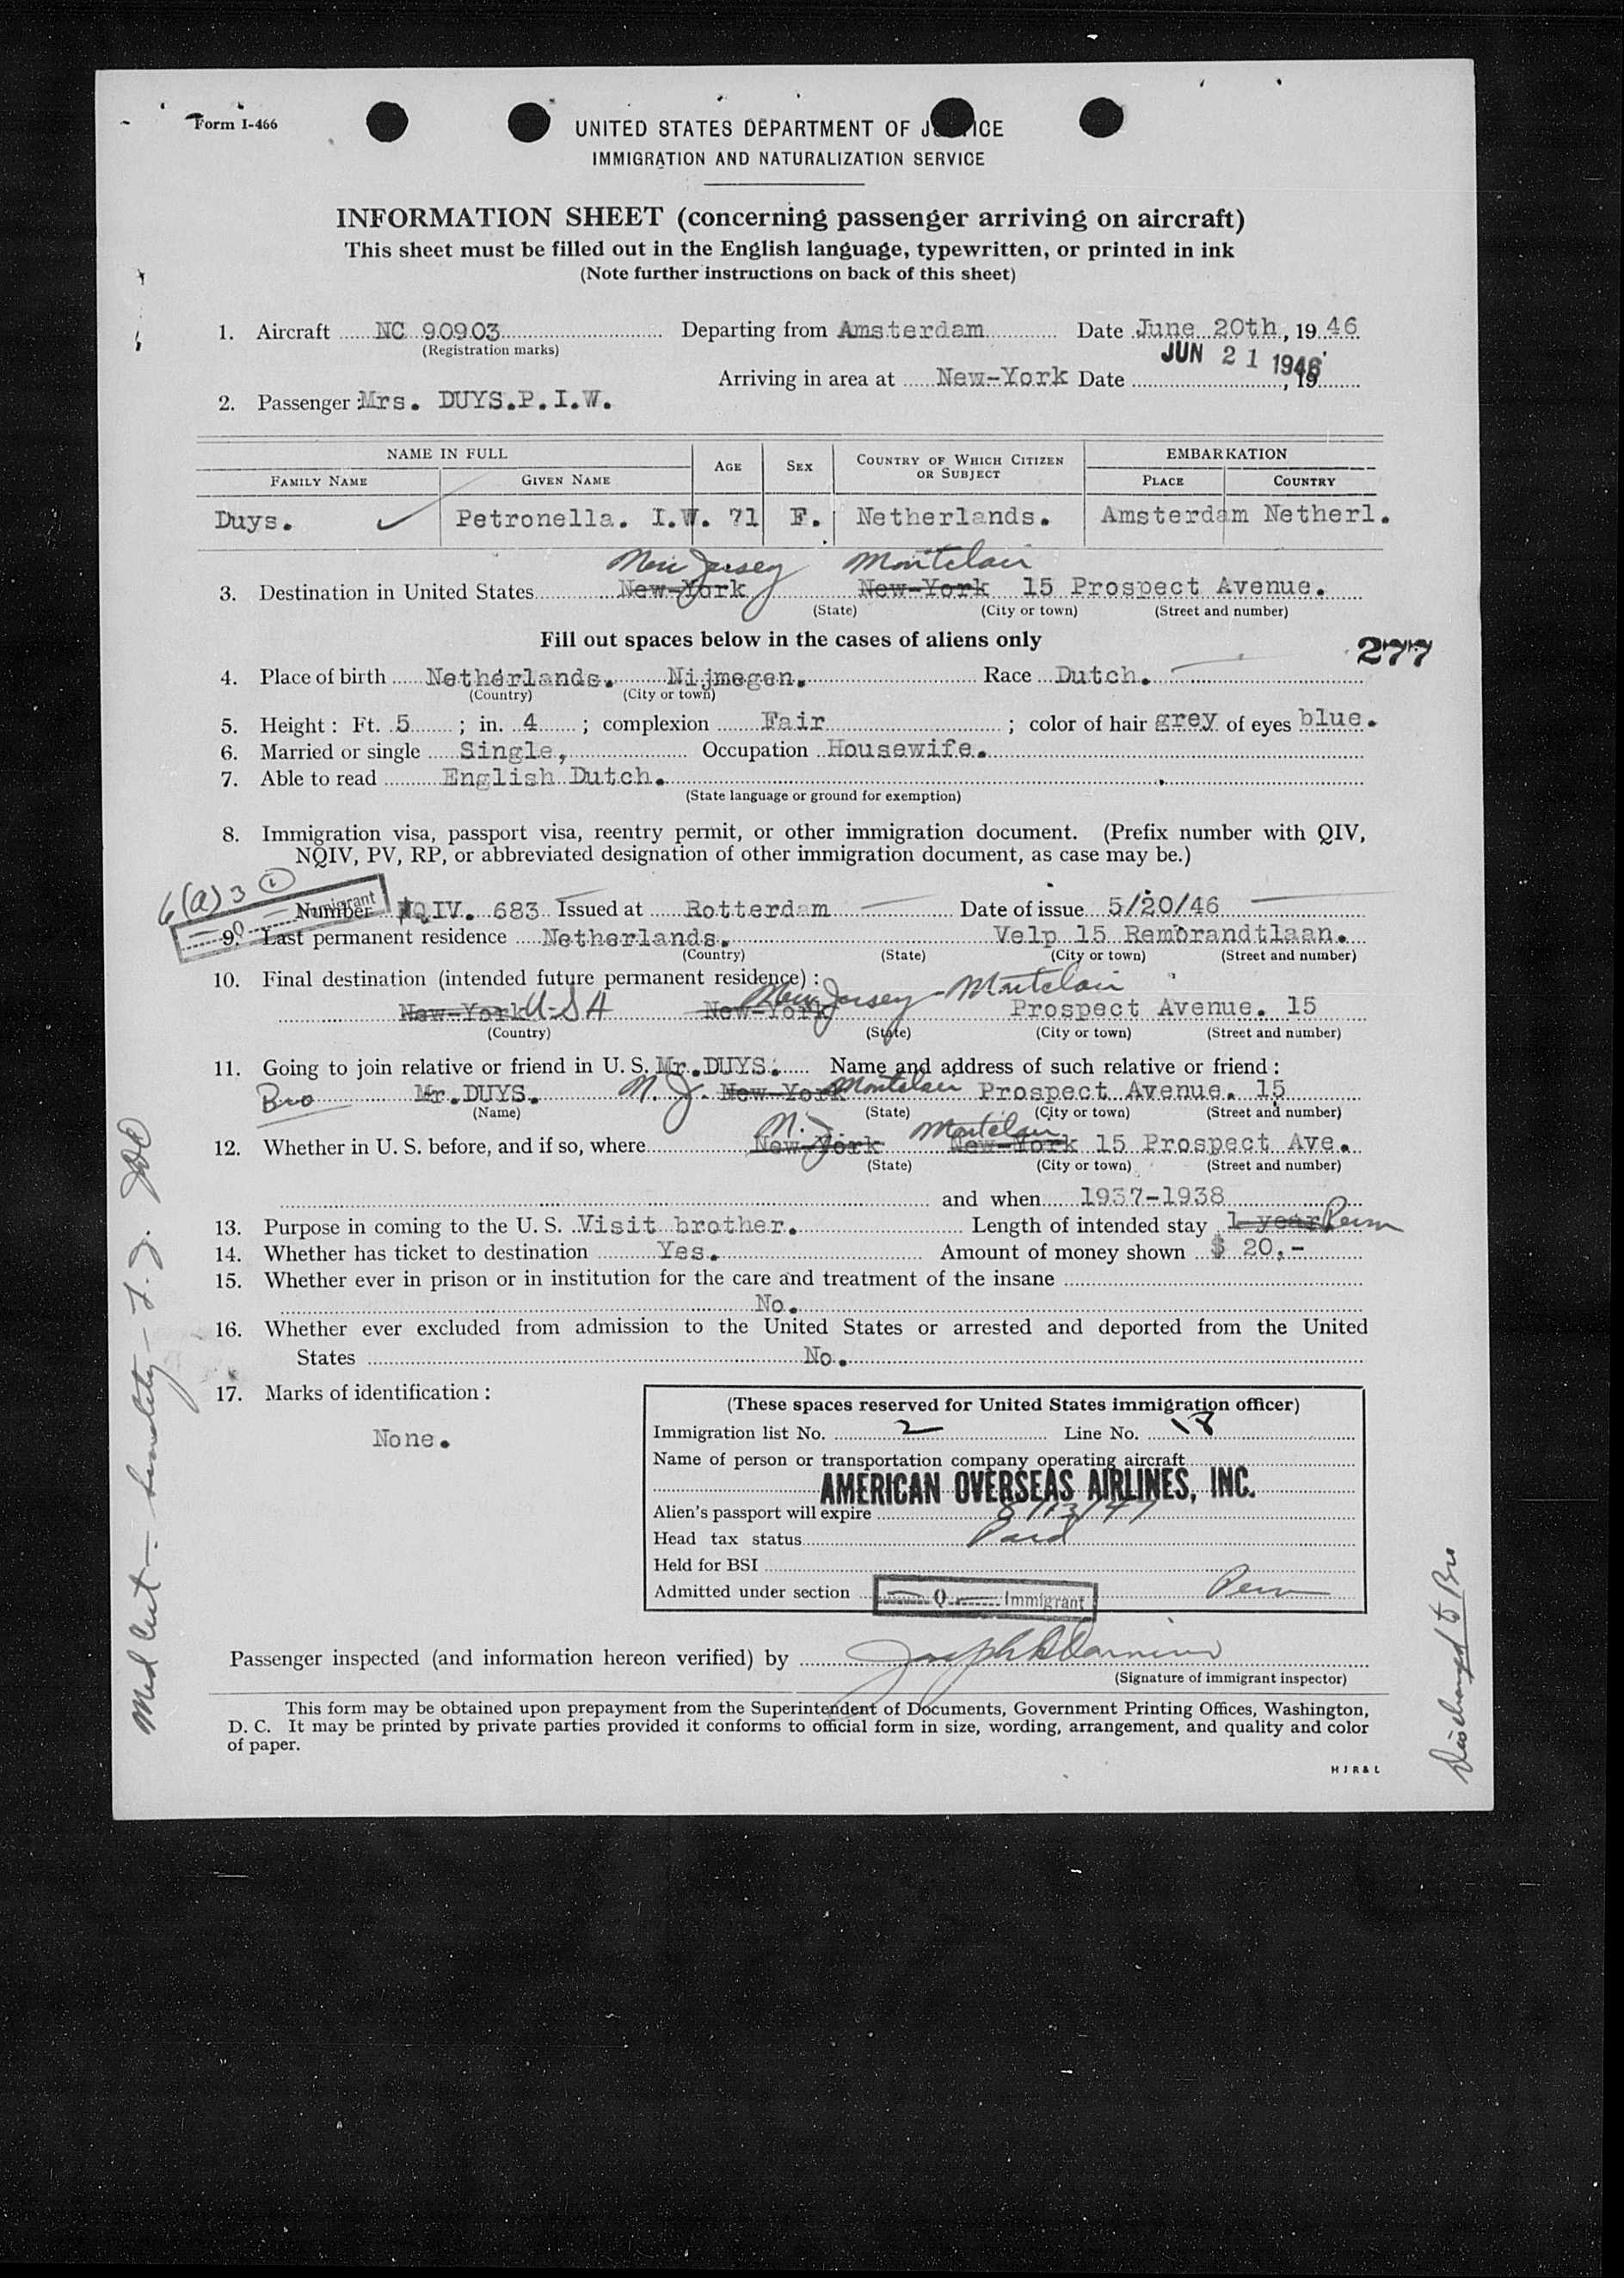 Form I-466
UNITED STATES DEPARTMENT OF J ICE
IMMIGRATION AND NATURALIZATION SERVICE
INFORMATION SHEET (concerning passenger arriving on aircraft)
This sheet must be filled out in the English language, typewritten, or printed in ink
(Note further instructions on back of this sheet)
1. Aircraft NC 90903 Departing from Amsterdam Date June 20th, 19 46
(Registration marks)
JUN 21 1946
Arriving in area at New-York Date , 19
2. Passenger: Mrs. DUYS.P.I.W.
NAME IN FULL AGE SEX COUNTRY OF WHICH CITIZEN OR SUBJECT EMBARKATION
FAMILY NAME GIVEN NAME PLACE COUNTRY
Duys. Petronella. I.W. 71 F. Netherlands. Amsterdam Netherl.
New Jersey Montclair
3. Destination in United States New-York New-York 15 Prospect Avenue.
(State) (City or town) (Street and number)
Fill out spaces below in the cases of aliens only
277
4. Place of birth Netherlands. Nijmegen. Race Dutch.
(Country) (City or town)
5. Height: Ft. 5 ; in. 4 ; complexion Fair ; color of hair grey of eyes blue.
6. Married or single Single, Occupation Housewife.
7. Able to read English Dutch.
(State language or ground for exemption)
8. Immigration visa, passport visa, reentry permit, or other immigration document. (Prefix number with QIV,
NQIV, PV, RP, or abbreviated designation of other immigration document, as case may be.)
6(a)3 1
Q Immigrant
Number QIV. 683 Issued at Rotterdam Date of issue 5/20/46
9. Last permanent residence Netherlands. Velp 15 Rembrandtlaan.
(Country) (State) (City or town) (Street and number)
10. Final destination (intended future permanent residence):
New-York USA New-York New Jersey - Montclair Prospect Avenue. 15
(Country) (State) (City or town) (Street and number)
11. Going to join relative or friend in U. S. Mr.DUYS. Name and address of such relative or friend:
Bro Mr.DUYS. N. J. New-York Montclair Prospect Avenue. 15
(Name) (State) (City or town) (Street and number)
N. J. Montclair
12. Whether in U. S. before, and if so, where New-York New-York 15 Prospect Ave.
(State) (City or town) (Street and number)
and when 1937-1938
13. Purpose in coming to the U. S. Visit brother. Length of intended stay 1 year Perm
14. Whether has ticket to destination Yes. Amount of money shown $ 20.-
15. Whether ever in prison or in institution for the care and treatment of the insane
No.
16. Whether ever excluded from admission to the United States or arrested and deported from the United
States No.
17. Marks of identification:
None.
(These spaces reserved for United States immigration officer)
Immigration list No. 2 Line No. 18
Name of person or transportation company operating aircraft
AMERICAN OVERSEAS AIRLINES, INC.
Alien's passport will expire 8/13/47
Head tax status Paid
Held for BSI
Admitted under section Q Immigrant Perm
Passenger inspected (and information hereon verified) by
(Signature of immigrant inspector)
This form may be obtained upon prepayment from the Superintendent of Documents, Government Printing Offices, Washington,
D. C. It may be printed by private parties provided it conforms to official form in size, wording, arrangement, and quality and color
of paper.
H J R & L
Med Cert - Senility -
Discharged to Bro